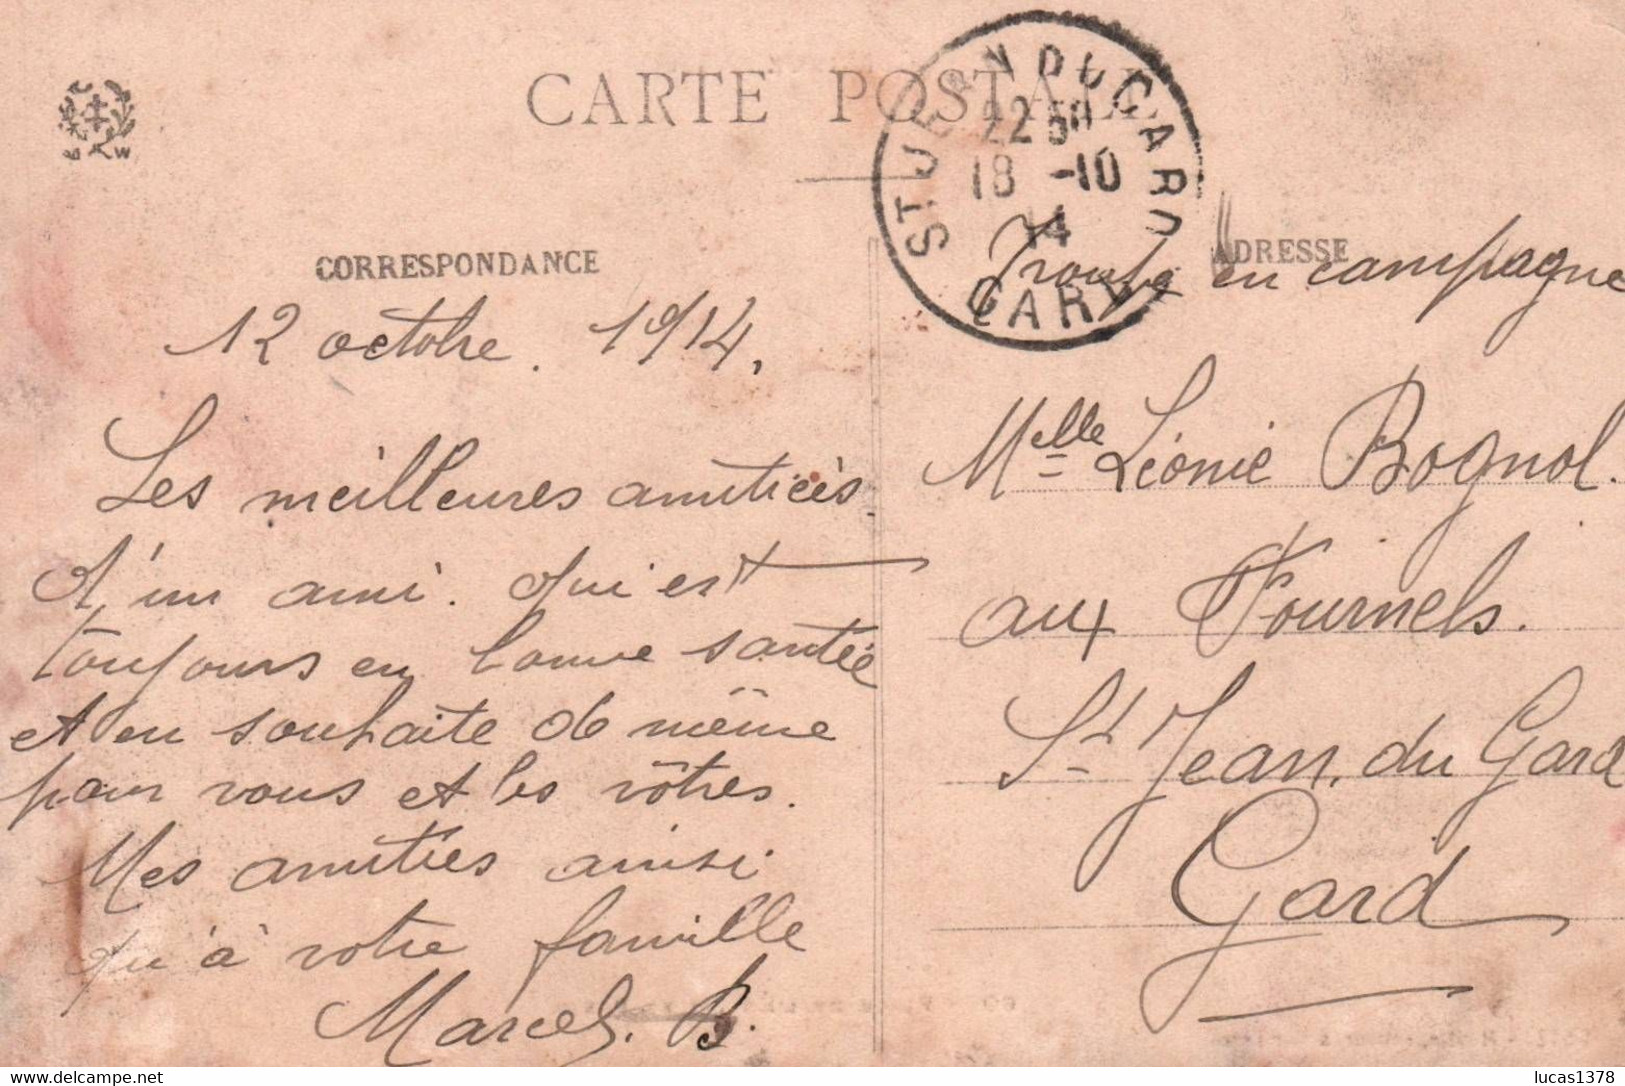 CARTE POSTALE
ST JEAN DU GARD
22 50
18 -10
14
GARD
CORRESPONDANCE
12 octobre. 1914.
Les meilleures amitiées
d'un ami. qui est
toujours en bonne santée
et en souhaite de même
pour vous et les vôtres.
Mes amitiés ainsi
qu'à votre famille
Marcel. B.
ADRESSE
Troupe en campagne
Melle Léonie Bognol.
aux Fournels.
St Jean. du Gard
Gard
www.delcampe.net
lucas1378